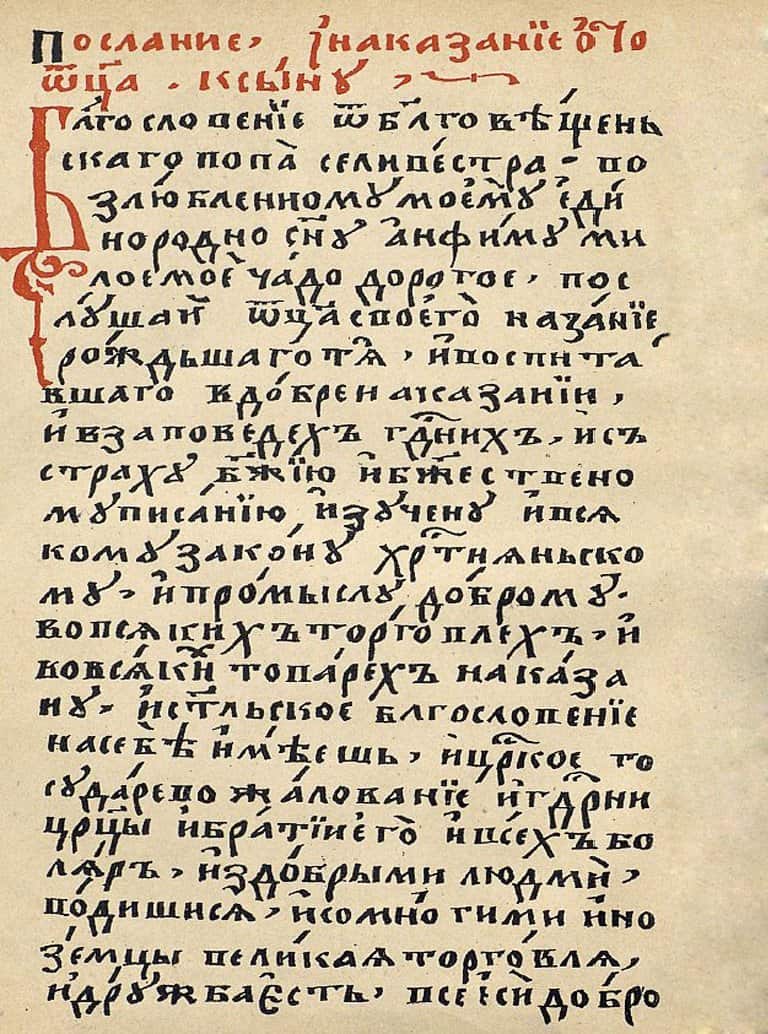 Посланїе, ї наказанїе ѿ
ѿца . к сы́нꙋ ,
Бл҃гословенїе ѿ бл҃говѣщень
скаго попа̀ селивестра - во
злю́бленномꙋ моемꙋ̀ еди́
нородно сн҃ꙋ а҆нфи́мꙋ ми
лое моѐ ча́до дорогое, пос
лꙋ́шай ѿца̀ своего̀ наказа́нїе
рождьшаго тѧ̀, и҆ воспита
вшаго в до́бре наказанїи,
и҆ в заповедехъ гдⷭ҇нихъ, и҆ съ
страхꙋ бж҃їю и҆ бжⷭ҇ествено
мꙋ писа́нїю и҆зꙋченꙋ и҆ всѧ
комꙋ зако́нꙋ хрⷭ҇тиѧньско
мꙋ, и҆ про́мыслꙋ до́бромꙋ.
во всѧкихъ торго́влехъ, и҆
во всѧ́ких това́рехъ нака́за
нꙋ, и҆ ст҃льское блгословенїе
на себѣ̀ и҆мѣ́ешь, и҆ црⷭ҇кое го
сꙋда́рево жа́лованїе и҆ гдⷭ҇рни
цр҃цы и҆ бра́тїи его̀ и҆ всехъ бо
лѧ́ръ, и҆ з до́брыми людмѝ,
водишисѧ, и҆ со мно́гими и҆но
зе́мцы великаѧ торго́влѧ,
и҆ дрꙋ́жба е҆сть, все еси̇̀ добро